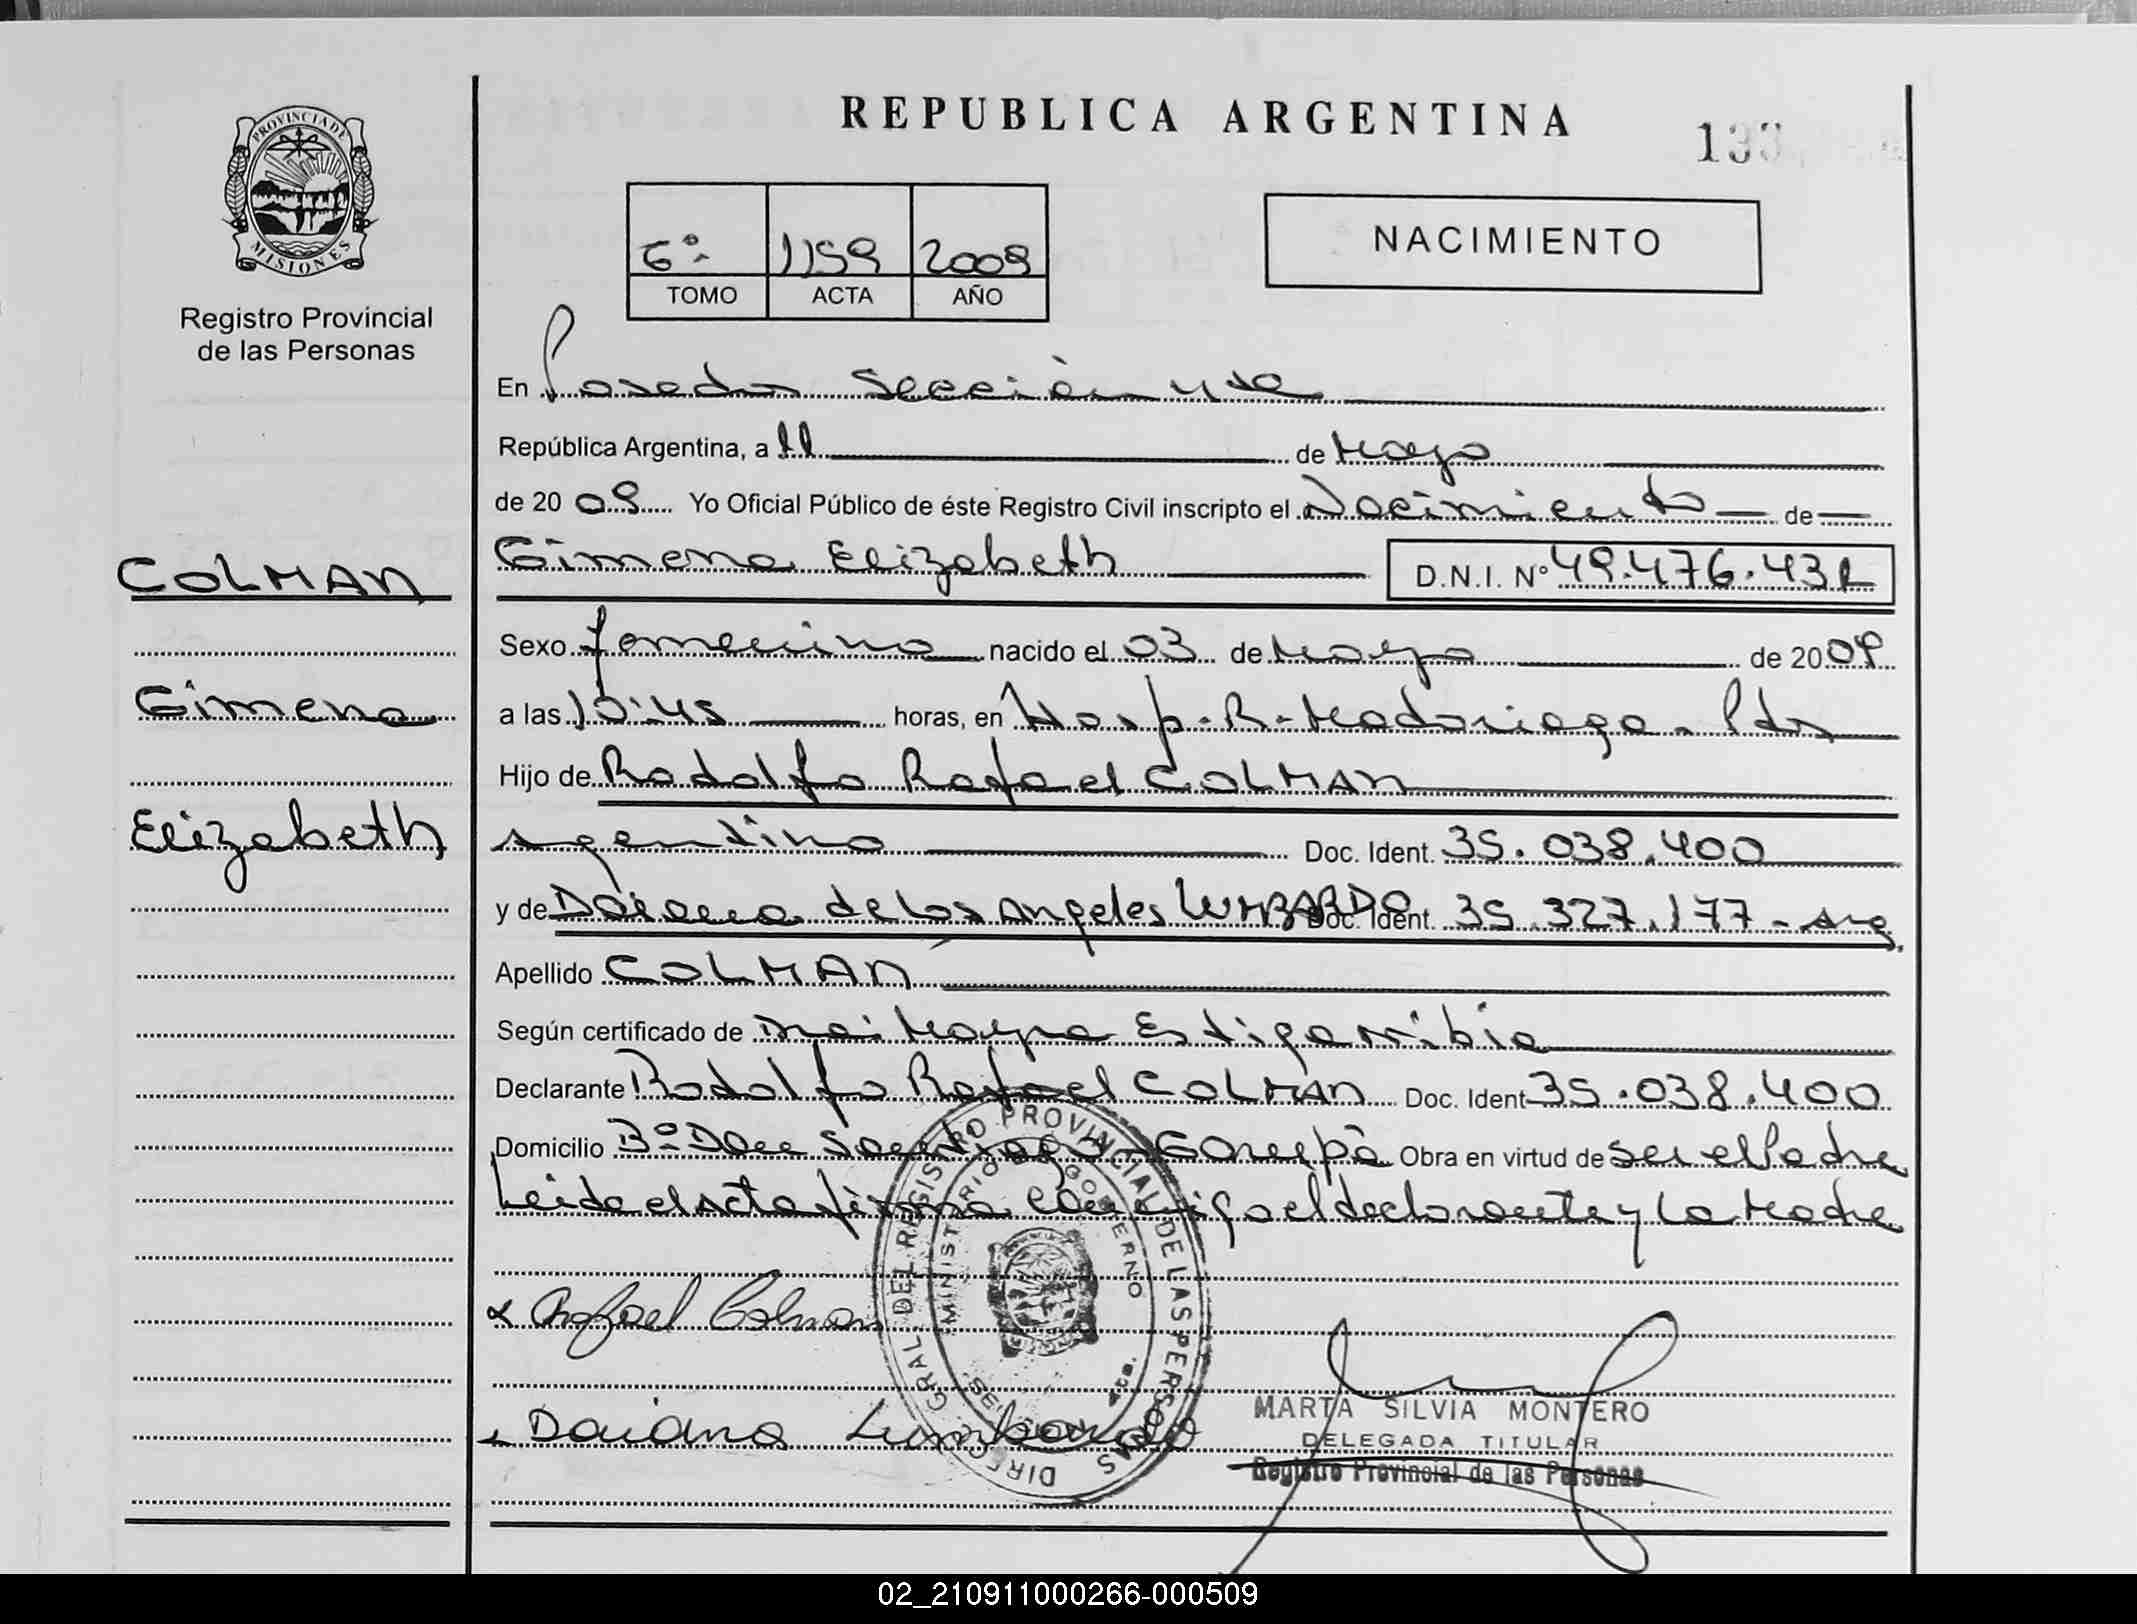 REPUBLICA ARGENTINA
PROVINCIA DE MISIONES
Registro Provincial
de las Personas
6º 1159 2009
TOMO ACTA AÑO
NACIMIENTO
En Posadas Sección 4ta
República Argentina, a 11 de Mayo
de 20 09 Yo Oficial Público de éste Registro Civil inscripto el Nacimiento de
COLMAN
Gimena Elizabeth D.N.I. Nº 49.476.431
Sexo femenino nacido el 03 de Mayo de 20 09
Gimena
a las 10:45 horas, en Hosp. R. Madariaga - Pdas
Hijo de Rodolfo Rafael COLMAN
Elizabeth
Argentino Doc. Ident. 35.038.400
y de Daiana de los Angeles LUMBARDO Doc. Ident. 35.327.177 - Arg.
Apellido COLMAN
Según certificado de Mayra Estigarribia
Declarante Rodolfo Rafael COLMAN Doc. Ident 35.038.400
Domicilio Bº Don Santiago Garupá Obra en virtud de ser el Padre
Leida el acta firma conmigo el declarante y la Madre
Rafael Colman
Daiana Lumbardo
DIREC. GRAL. DEL REGISTRO PROVINCIAL DE LAS PERSONAS
MINISTERIO DE GOBIERNO
MARTA SILVIA MONTERO
DELEGADA TITULAR
Registro Provincial de las Personas
02_210911000266-000509